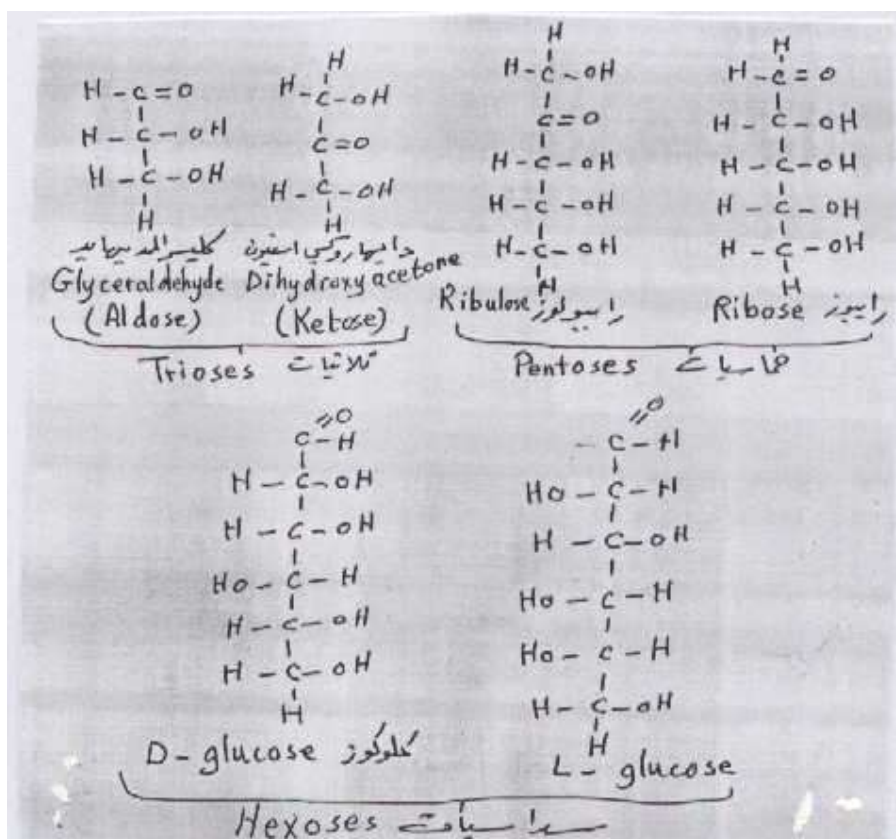 H-C=O
H-C-OH
H-C-OH
H
كليسر الديهايد
Glyceraldehyde
(Aldose)
H
H-C-OH
C=O
H-C-OH
H
Dihydroxy acetone
(Ketose)
Trioses ثلاثيات
H
H-C-OH
C=O
H-C-OH
H-C-OH
H-C-OH
H
Ribulose رايبولوز
H
H-C=O
H-C-OH
H-C-OH
H-C-OH
H-C-OH
H
Ribose رايبوز
Pentoses خماسيات
O
C-H
H-C-OH
H-C-OH
HO-C-H
H-C-OH
H-C-OH
H
D-glucose كلوكوز
O
-C-H
HO-C-H
H-C-OH
HO-C-H
HO-C-H
H-C-OH
H
L-glucose
Hexoses سداسيات